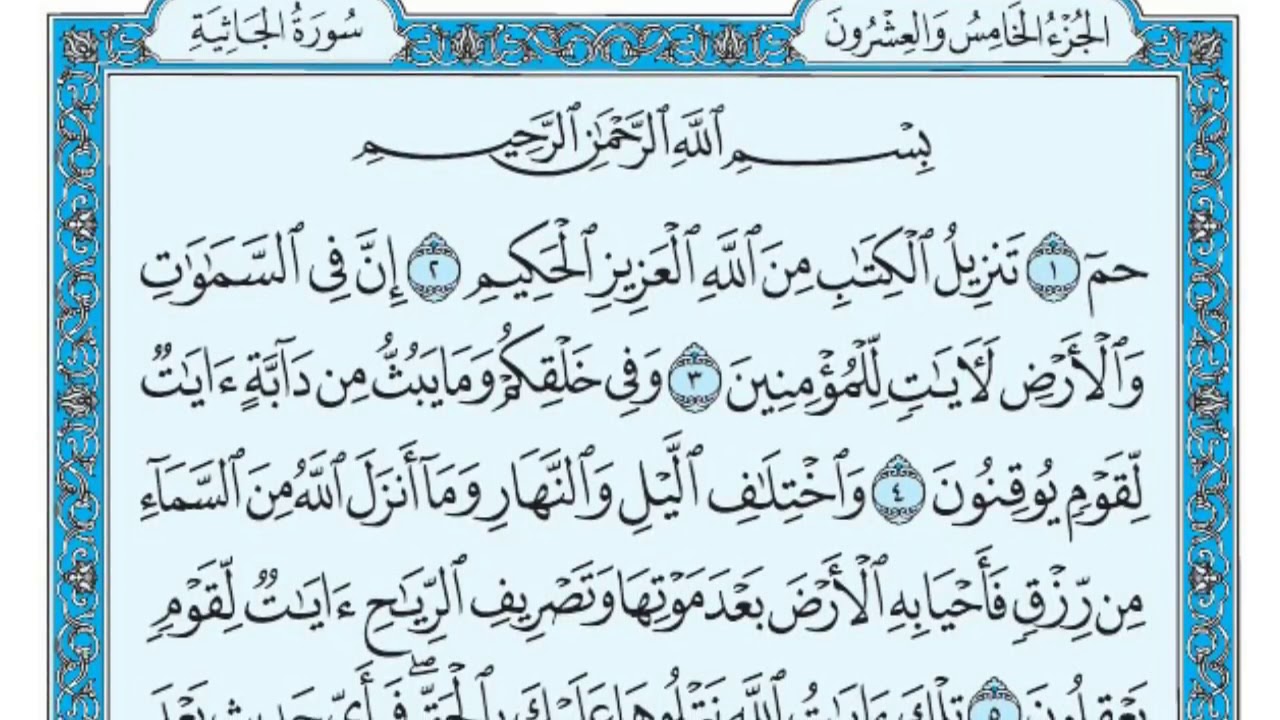 الجُزْءُ الخَامِسُ وَالعِشْرُونَ
سُورَةُ الجَاثِيَةِ
بِسْمِ ٱللَّهِ ٱلرَّحْمَٰنِ ٱلرَّحِيمِ
حمٓ ١ تَنزِيلُ ٱلْكِتَٰبِ مِنَ ٱللَّهِ ٱلْعَزِيزِ ٱلْحَكِيمِ ٢ إِنَّ فِى ٱلسَّمَٰوَٰتِ
وَٱلْأَرْضِ لَءَايَٰتٍ لِّلْمُؤْمِنِينَ ٣ وَفِى خَلْقِكُمْ وَمَا يَبُثُّ مِن دَآبَّةٍ ءَايَٰتٌ
لِّقَوْمٍ يُوقِنُونَ ٤ وَٱخْتِلَٰفِ ٱلَّيْلِ وَٱلنَّهَارِ وَمَآ أَنزَلَ ٱللَّهُ مِنَ ٱلسَّمَآءِ
مِن رِّزْقٍ فَأَحْيَا بِهِ ٱلْأَرْضَ بَعْدَ مَوْتِهَا وَتَصْرِيفِ ٱلرِّيَٰحِ ءَايَٰتٌ لِّقَوْمٍ
يَعْقِلُونَ ٥ تِلْكَ ءَايَٰتُ ٱللَّهِ نَتْلُوهَا عَلَيْكَ بِٱلْحَقِّ ۖ فَبِأَىِّ حَدِيثٍۭ بَعْدَ